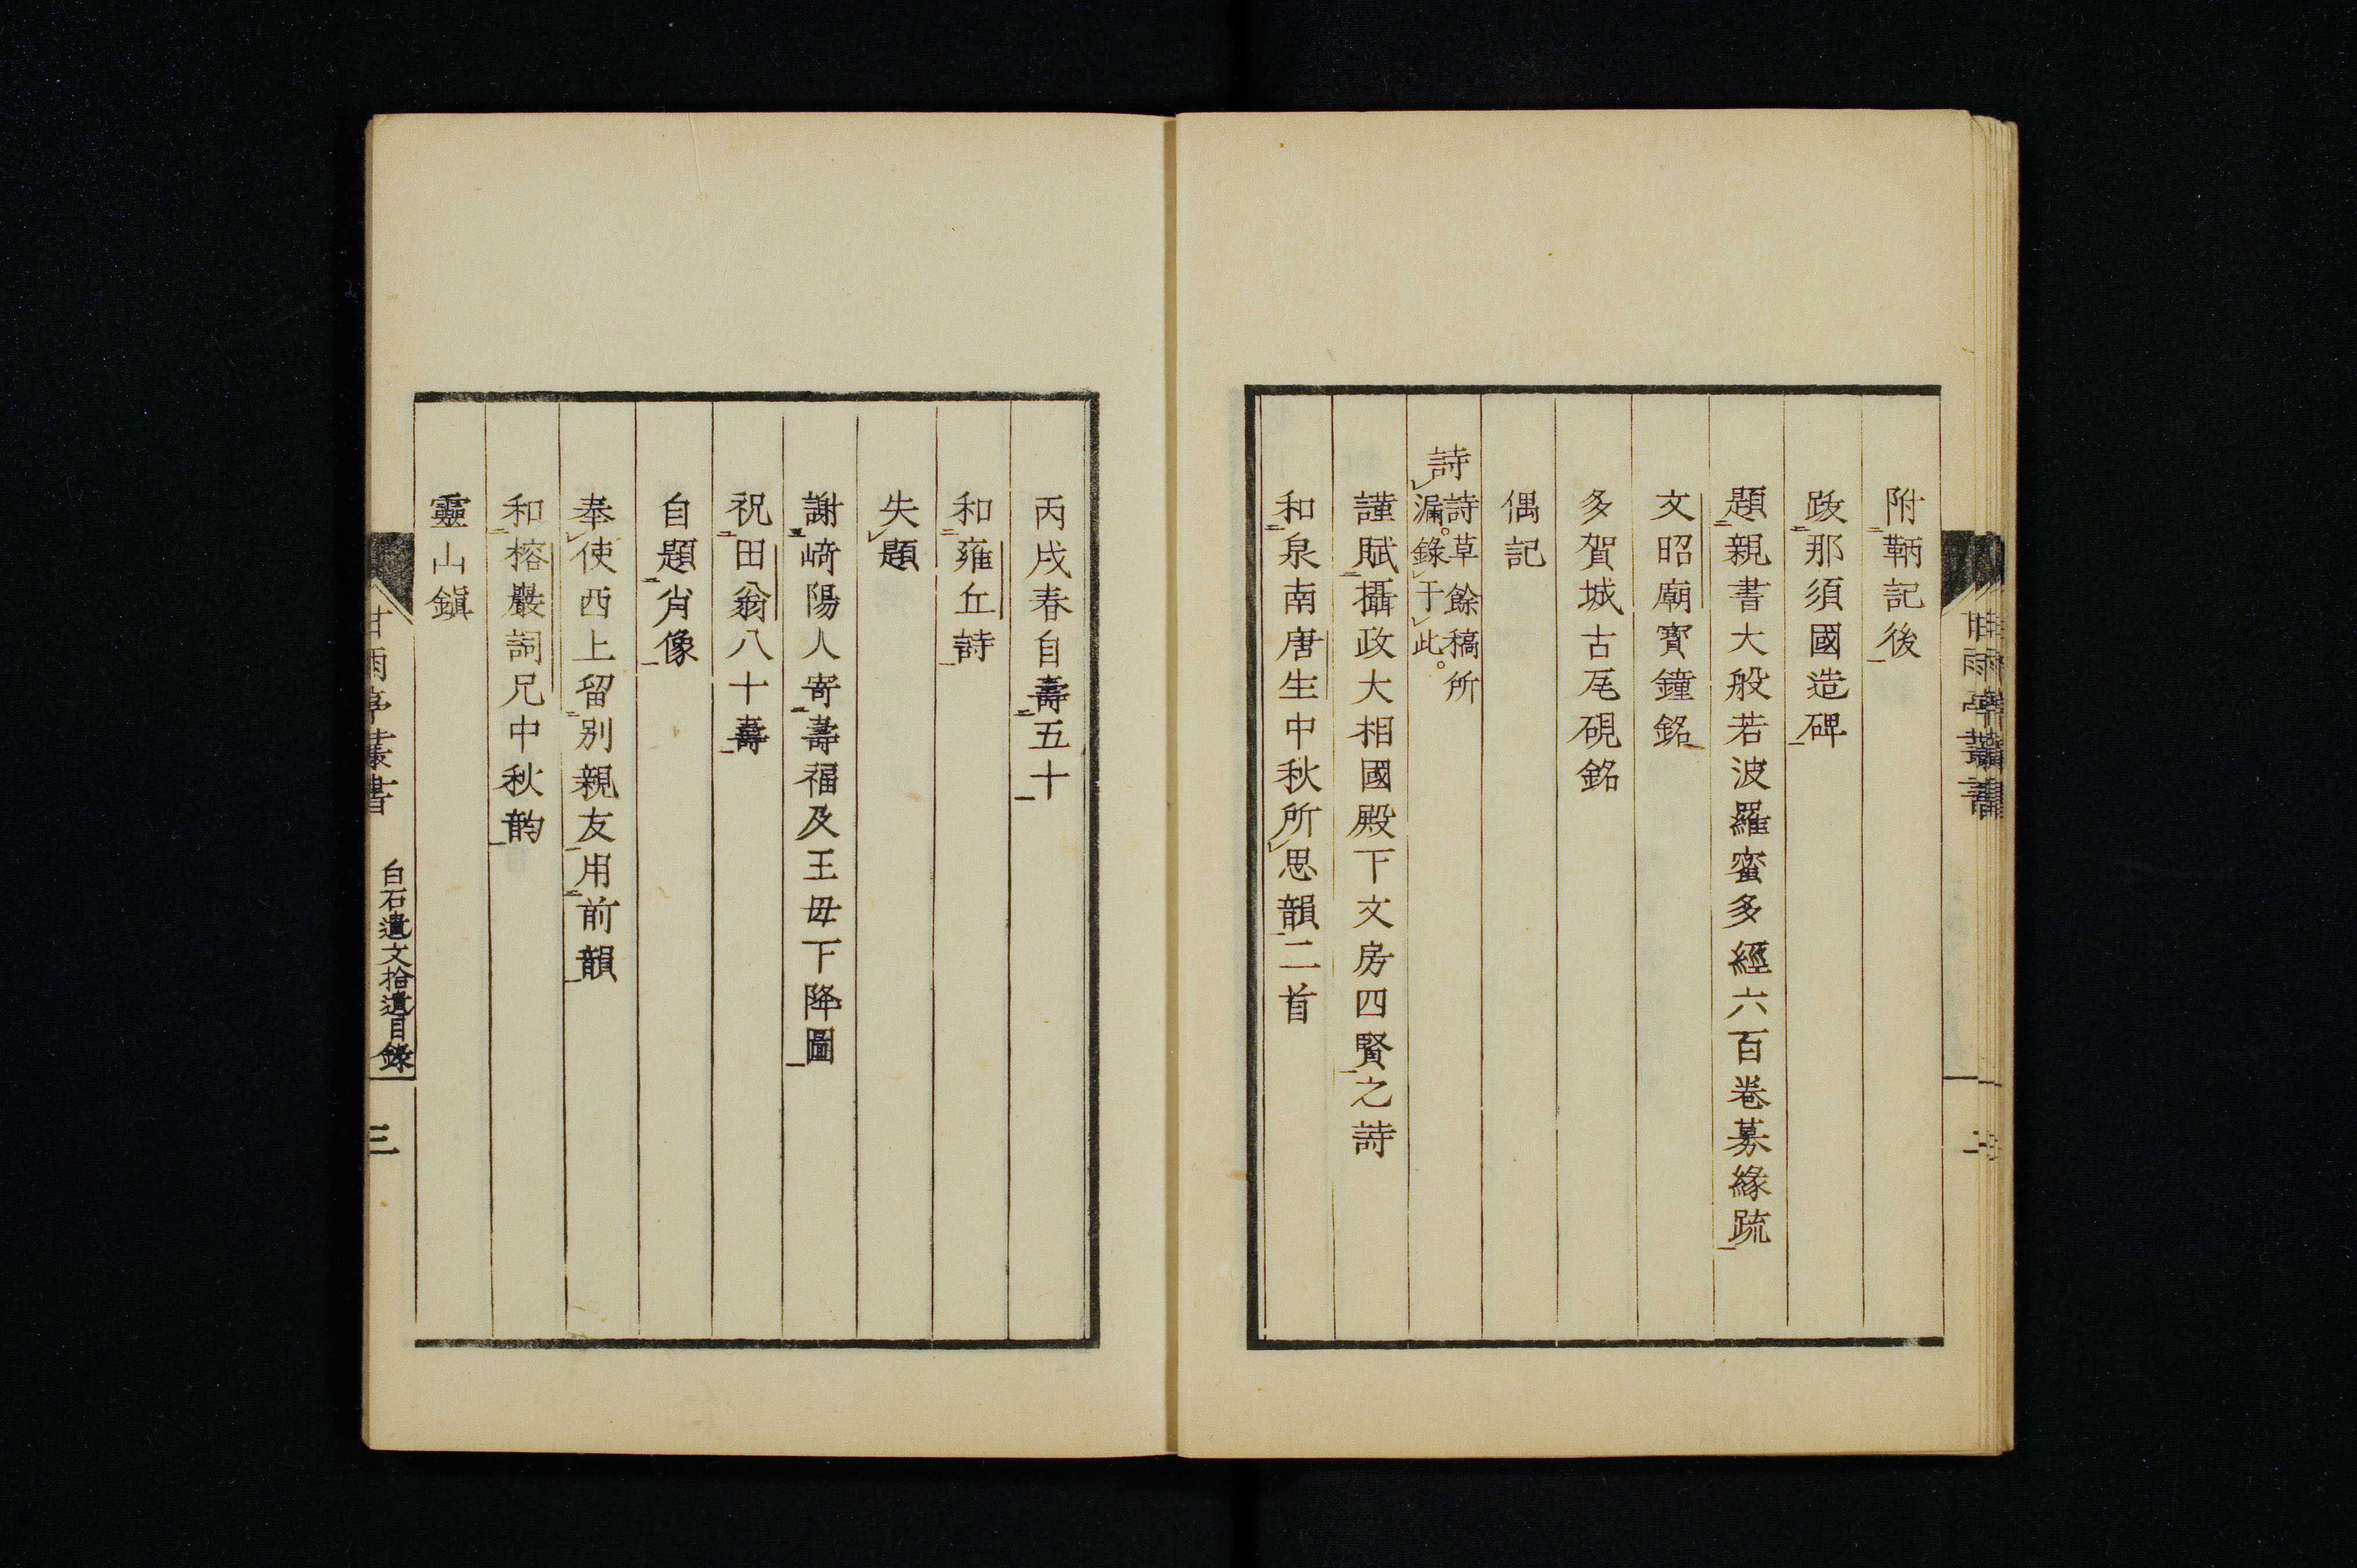 附鞆記後
跋那須國造碑
題親書大般若波羅蜜多經六百卷募緣疏
文昭廟寳鐘銘
多賀城古瓦硯銘
偶記
詩 詩草餘稿所漏錄于此
謹賦攝政大相國殿下文房四賢之詩
和泉南唐生中秋所思韻二首
丙戌春自壽五十
和雍丘詩
失題
謝﨑陽人寄壽福及王母下降圖
祝田翁八十壽
自題肖像
奉使西上留別親友用前韻
和榕巖詞兄中秋韵
靈山鎭
甘雨亭叢書 白石遺文拾遺目錄 三